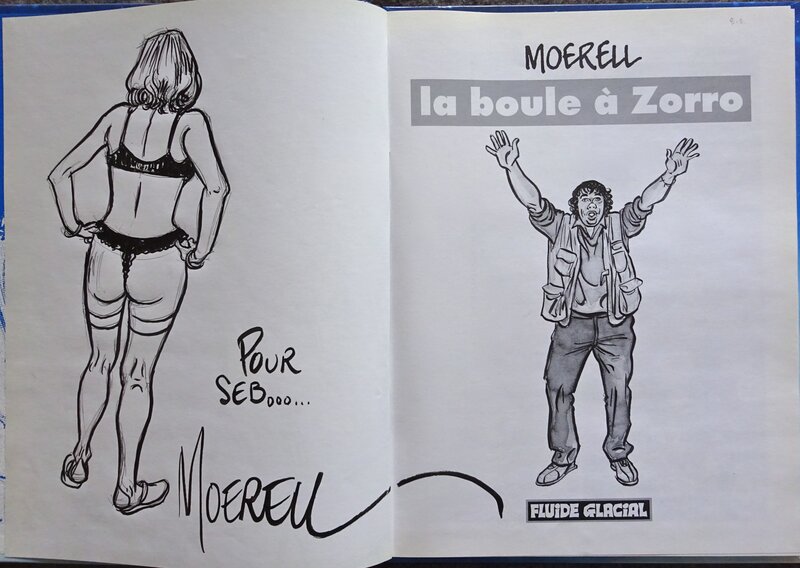 POUR
SEB...…
MOERELL
MOERELL
la boule à Zorro
FLUIDE GLACIAL